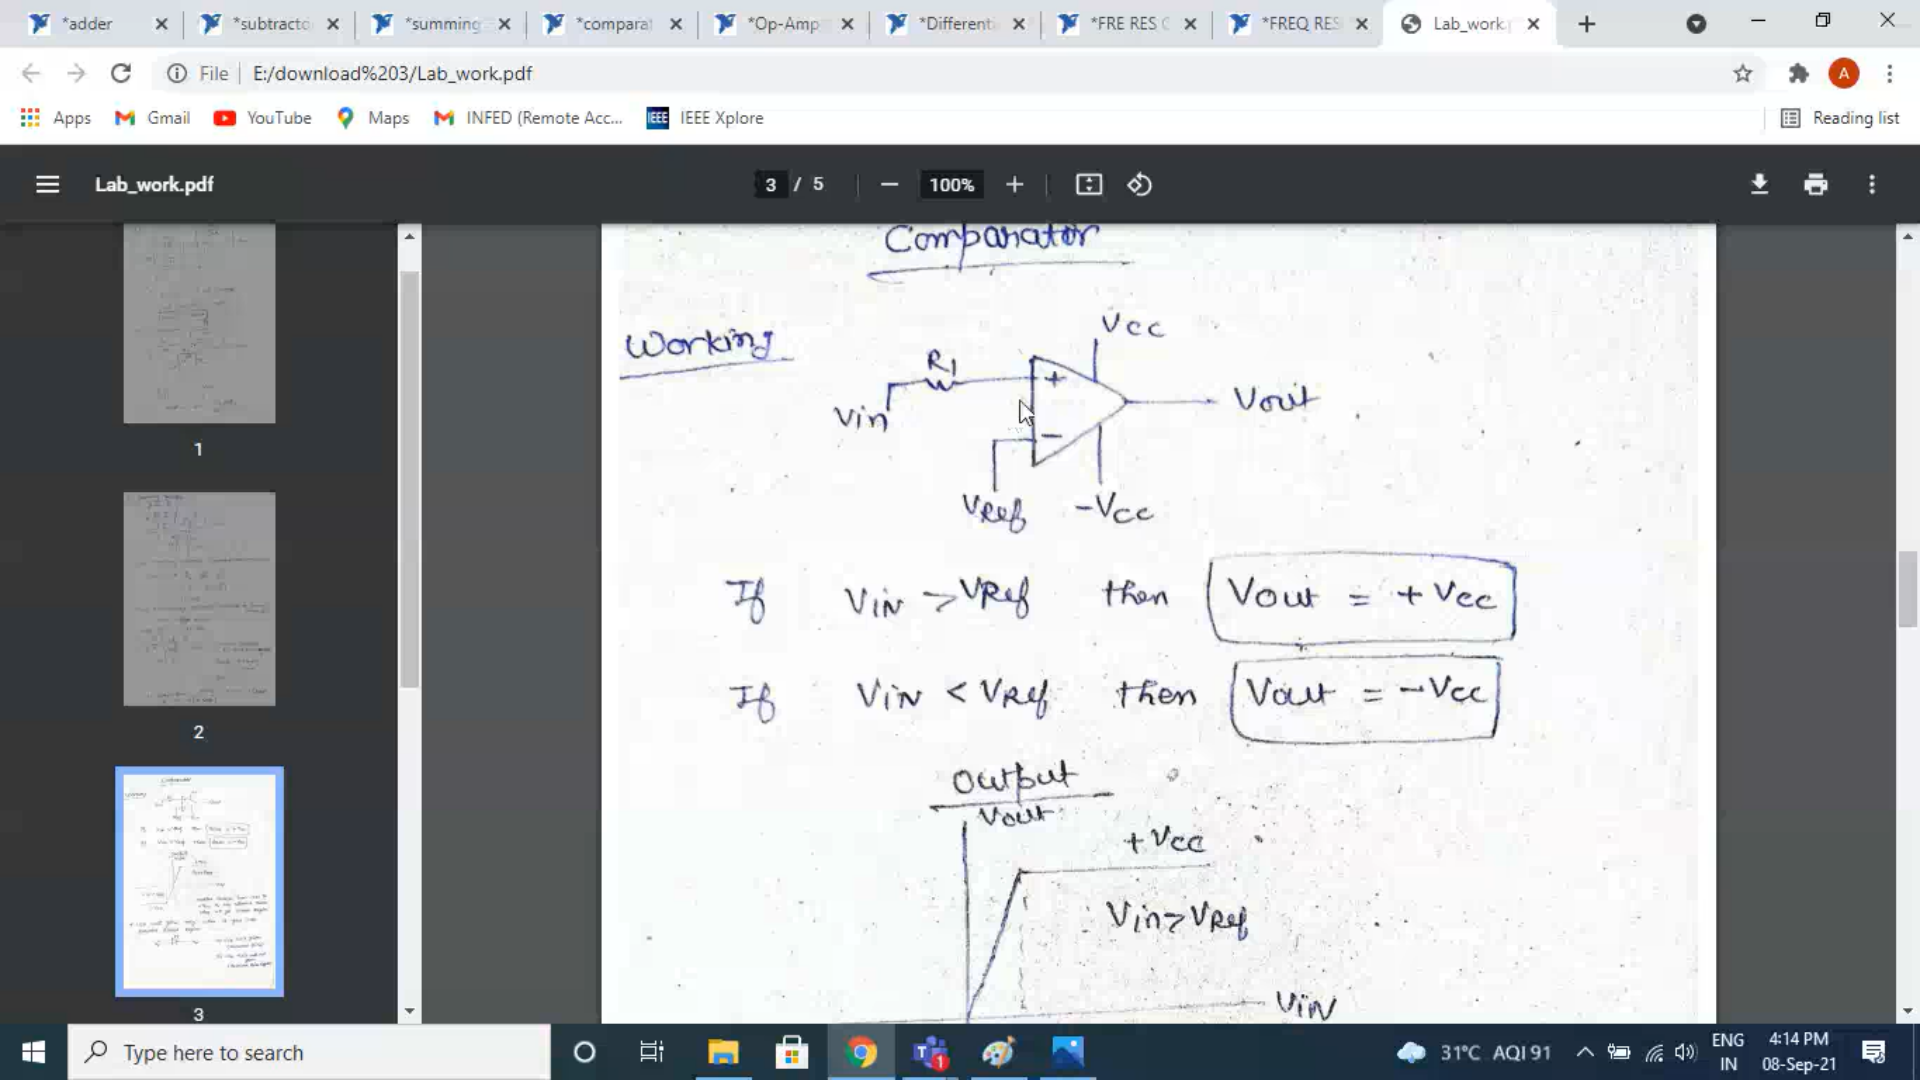 *adder
*subtracto
*summing
*comparat
*Op-Amp
*Differenti
*FRE RES C
*FREQ RES
Lab_work.
File E:/download%203/Lab_work.pdf
A
Apps Gmail YouTube Maps INFED (Remote Acc... IEEE IEEE Xplore Reading list
Lab_work.pdf 3 / 5 100%
1
2
3
Comparator
Working
Vcc
R1
+
Vin
Vout
-
VRef -Vcc
If Vin > VRef then Vout = + Vcc
If Vin < VRef then Vout = -Vcc
Output
Vout
+Vcc
Vin>VRef
Vin
Type here to search
1
31°C AQI 91
ENG
IN
4:14 PM
08-Sep-21